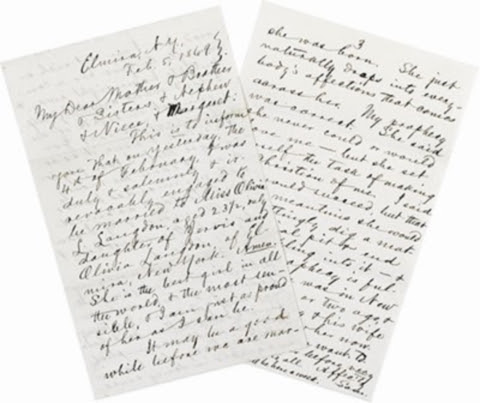 Elmira, N.Y.
Feb. 5, 1869
My Dear Mother & Brother
& Sisters & Nephew
& Niece, & Margaret:
This is to inform
you that on yesterday, the
4th of February, I was
duly & solemnly & ir-
revocably engaged to
be married to Miss Olivia
L. Langdon, aged 23 1/2, only
daughter of Jervis and
Olivia Langdon, of El-
mira, New York. Amen.
She is the best girl in all
the world, & the most sen-
sible, & I am just as proud
of her as I can be.
It may be a good
while before we are mar-
3
she was born. She just
naturally drops into every-
body's affections that comes
across her. My prophecy
was correct. She said
she never could or would
love me — but she set
herself the task of making
Christian of me. I said
would succeed, but that
meantime she would
tingly dig a mat-
al pit & end
ling into it — &
ophecy is ful-
man in New
or two ago
& his wife
her now
want to
before very
all. Affecty
Sam.